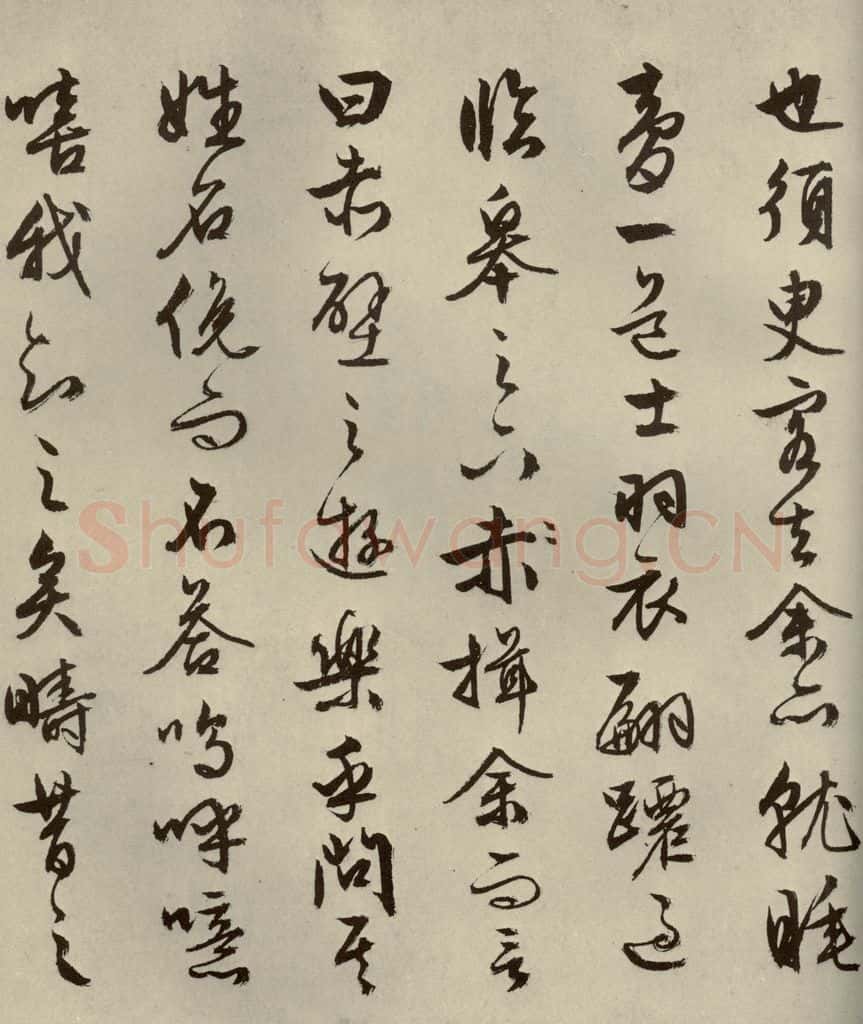 也須臾客去余亦就睡
夢一道士羽衣翩躚過
臨臯之下赤揖余而言
曰赤壁之遊樂乎問其
姓名俛而不答嗚呼噫
嘻我知之矣疇昔之
Shufawang.CN